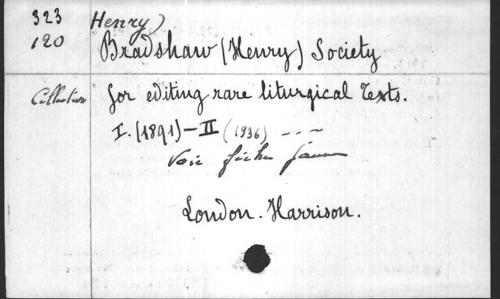 323
120
Henry)
Bradshaw (Henry) Society
Collection
for editing rare liturgical Texts.
I. (1891) – II (1936) ----
Voir fiches jaunes
London. Harrison.